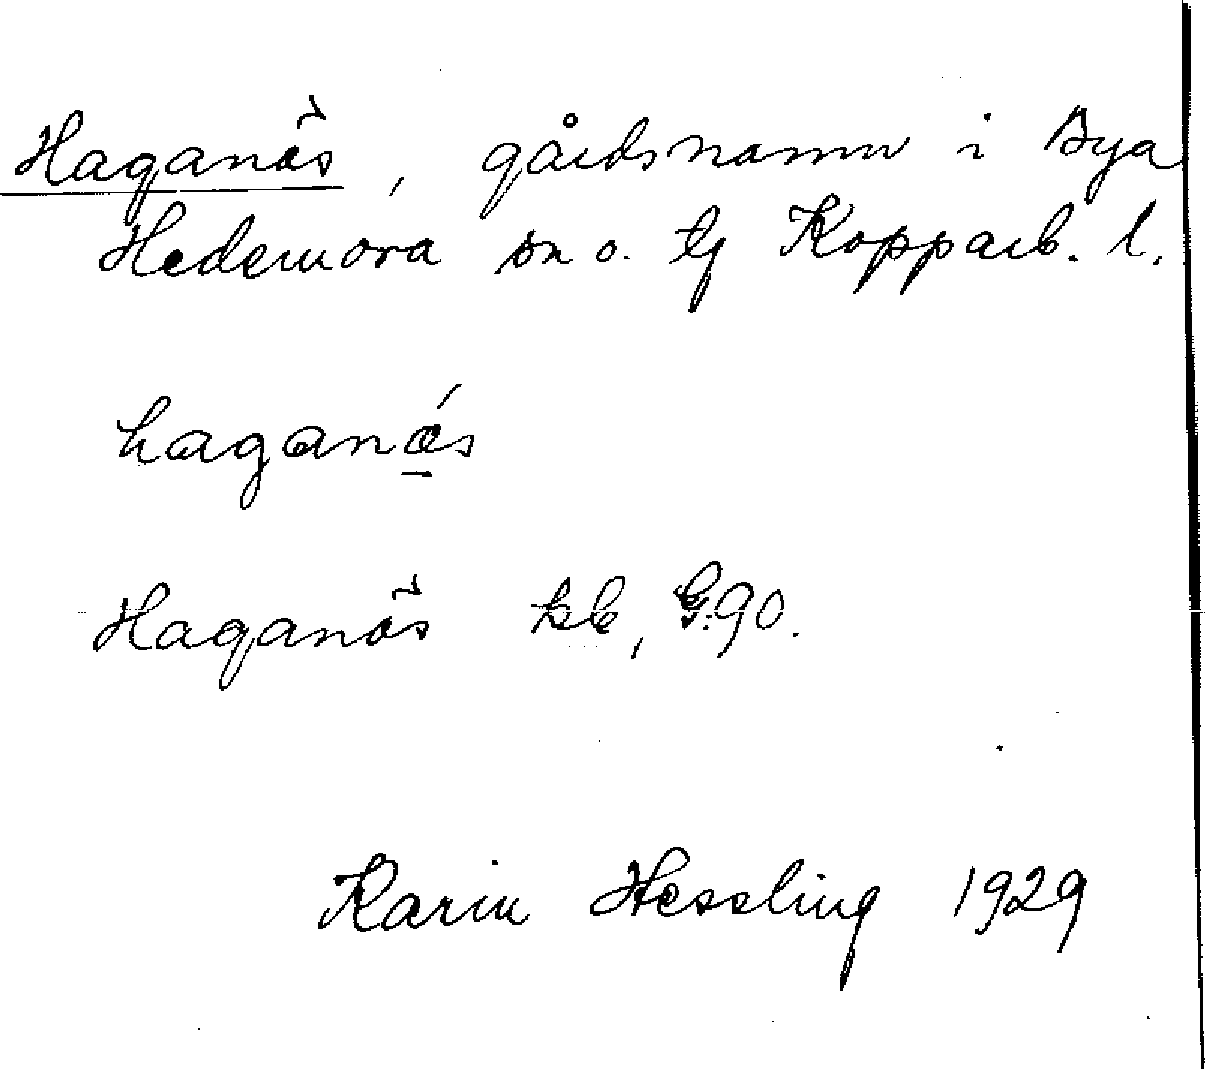 Haganäs, gårdsnamn i Bya
Hedemora sn o. tg Kopparb. l.
haganǽs
Haganäs kb, G:90.
Karin Hessling 1929